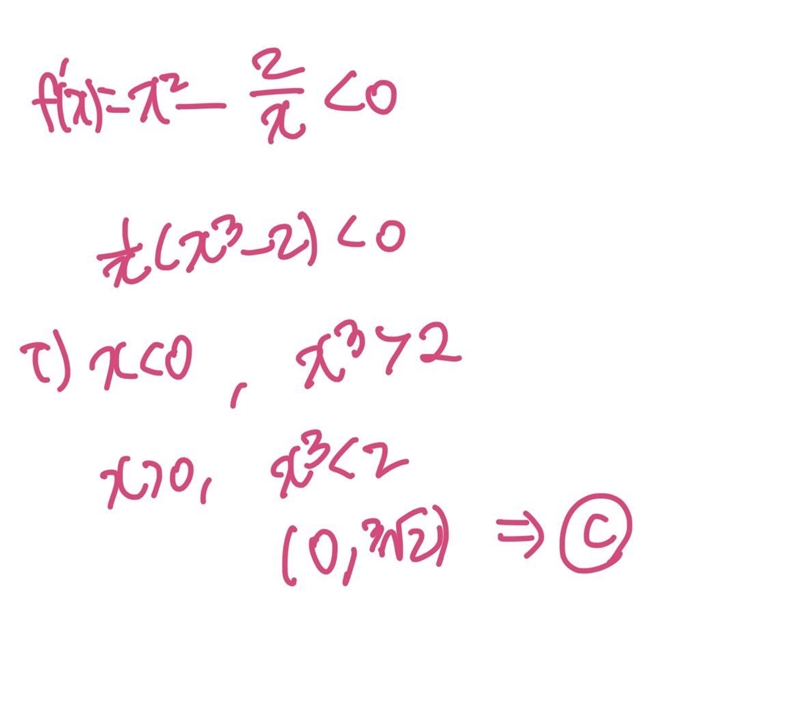 f'(x)=x²-2/x<0
1/x(x³-2)<0
i) x<0, x³>2
x>0, x³<2
(0,³√2) ⇒ Ⓒ